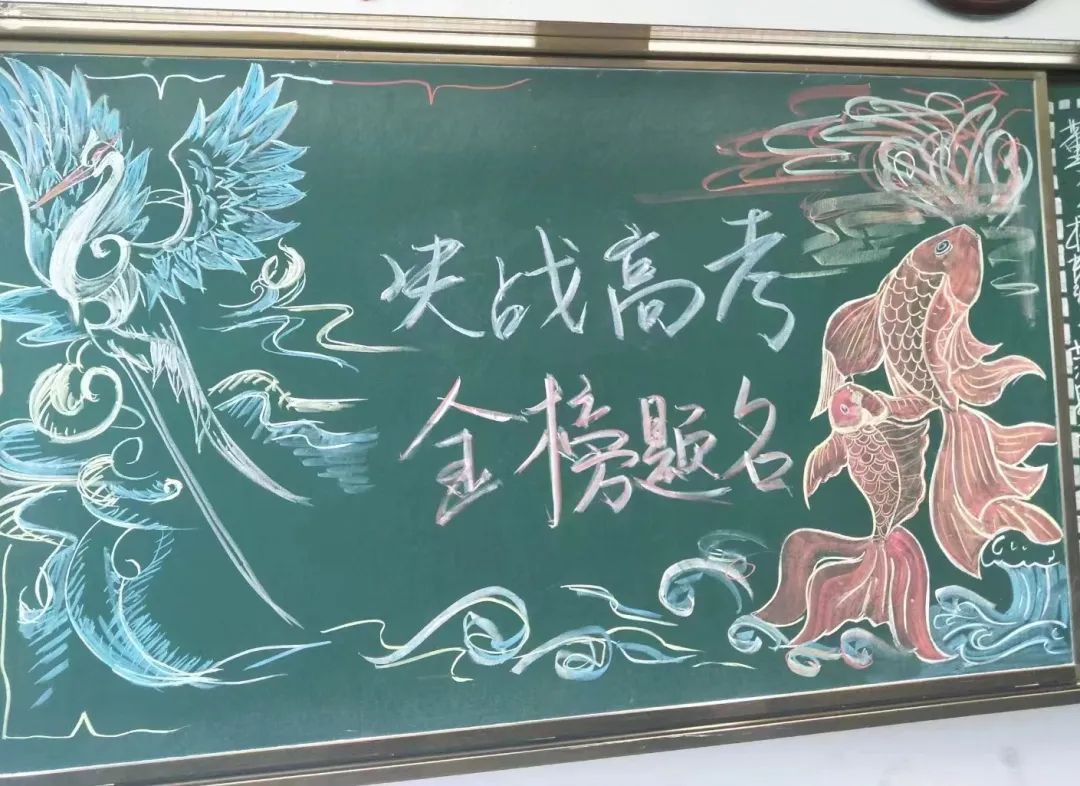 决战高考
金榜题名